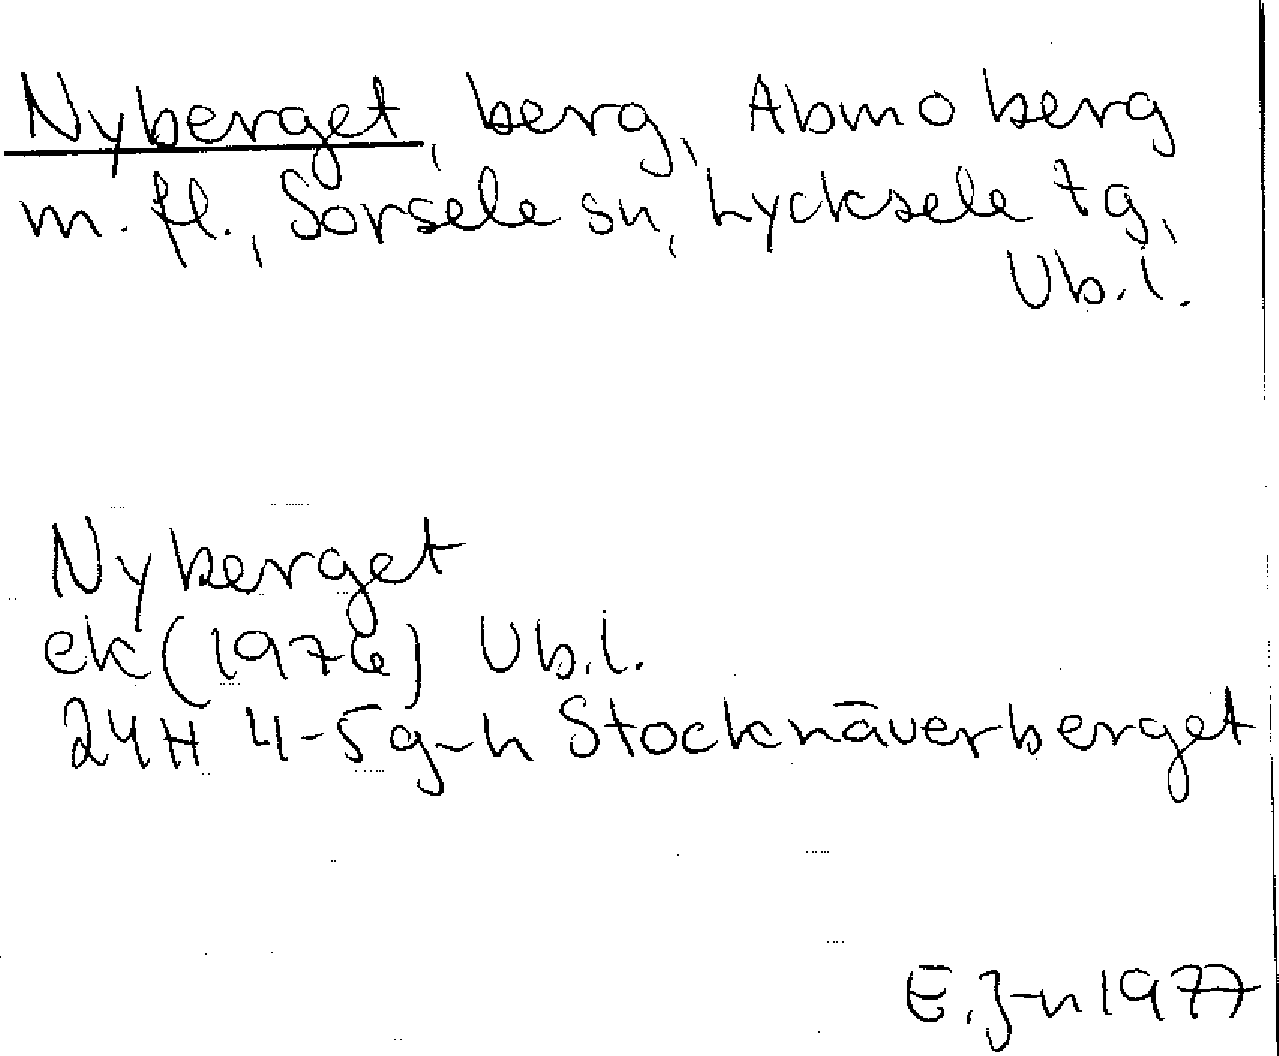 Nyberget, berg, Abmoberg
m. fl., Sorsele sn, Lycksele tg,
Vb.l.
Nyberget
ek (1976) Vb.l.
24H 4-5 g-h Stocknäverberget
E. J-n 1977